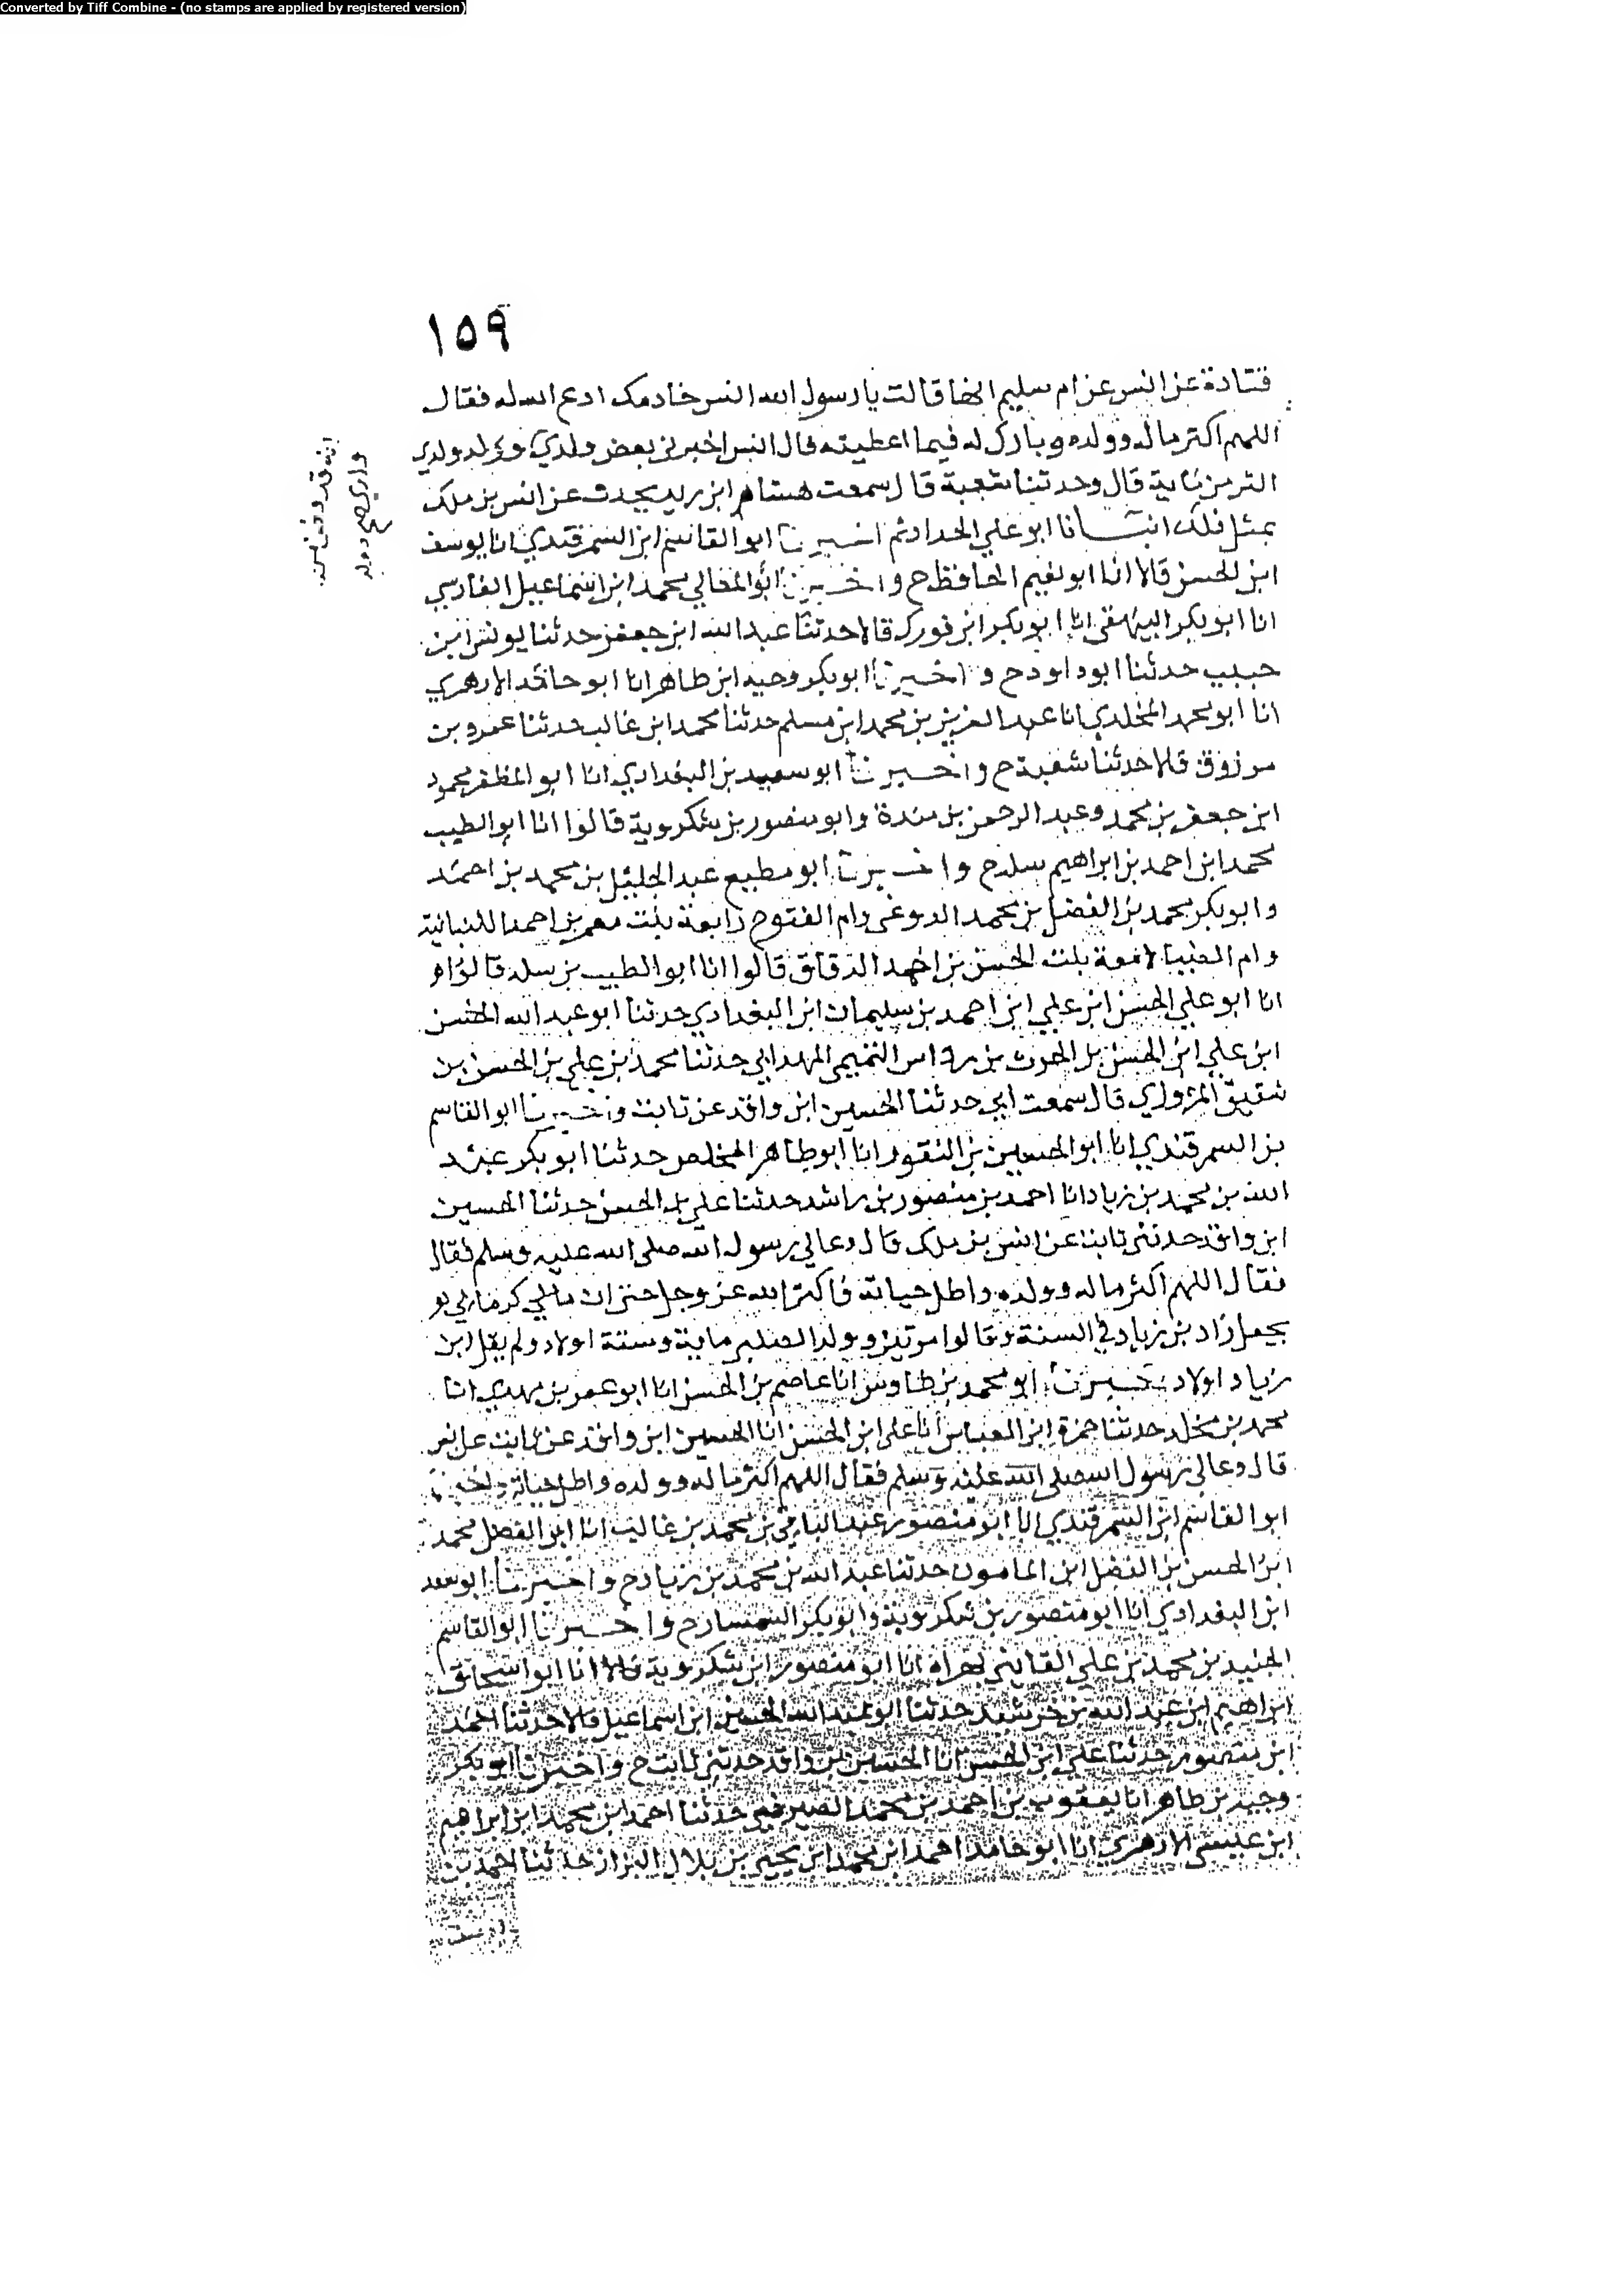 Converted by Tiff Combine - (no stamps are applied by registered version)
١٥٩
قتادة عن انس عن ام سليم انها قالت يا رسول الله انس خادمك ادع الله له فقال
اللهم اكثر ماله وولده وبارك له فيما اعطيته قال انس اخبرني بعض ولدي وولد ولدي
قال وحدثنا شعبة قال سمعت هشام ابن زيد يحدث عن انس بن ملك
بمثل ذلك انبأنا ابو علي الحداد ثم اخبرنا ابو القاسم ابن السمرقندي انا يوسف
ابن الحسن قالا انا ابو نعيم الحافظ ح واخبرنا ابو المعالي محمد ابن اسماعيل الفارسي
انا ابو بكر البيهقي انا ابو بكر ابن فورك قالا حدثنا عبد الله ابن جعفر حدثنا يونس ابن
حبيب حدثنا ابو داود ح واخبرنا ابو بكر وجيه ابن طاهر انا ابو حامد الازهري
انا ابو محمد المخلدي انا عبد العزيز بن محمد ابن مسلم حدثنا محمد ابن غالب حدثنا عمرو بن
مرزوق قالا حدثنا شعبة ح واخبرنا ابو سعيد بن البغدادي انا ابو المظفر محمود
ابن جعفر بن محمد وعبد الرحمن بن مندة وابو منصور بن شكروية قالوا انا ابو الطيب
محمد ابن احمد بن ابراهيم سلة ح واخبرنا ابو مطيع عبد الجليل بن محمد بن احمد
وابو بكر محمد بن الفضل بن محمد وام الفتوح رابعة بنت معمر بن احمد اللنبانية
وام بنت الحسن بن احمد الدقاق قالوا انا ابو الطيب بن سلة قالوا
انا ابو علي الحسن ابن علي ابن احمد بن سليمان ابن البغدادي حدثنا ابو عبد الله الحسن
ابن علي ابن الحسن بن الحرث بن التميمي حدثنا محمد بن علي بن الحسن بن
شقيق المروزي قال سمعت ابي حدثنا الحسين ابن واقد عن ثابت واخبرنا ابو القاسم
بن السمرقندي انا ابو الحسين بن النقور انا ابو طاهر المخلص حدثنا ابو بكر عبد
الله بن محمد بن زياد انا احمد بن منصور بن راشد حدثنا علي بن الحسن حدثنا الحسين
ابن واقد حدثني ثابت عن انس بن ملك قال دعا لي رسول الله صلى الله عليه وسلم فقال
فقال اللهم اكثر ماله وولده واطل حياته فاكثر الله عز وجل حتى ان مالي
يحمل زاد بن زياد في السنة وقالوا مرتين وولد لصلبي ماية وستة اولاد ولم يقل ابن
زياد اولاد اخبرنا ابو محمد بن طاوس انا عاصم بن الحسن انا ابو عمر بن مهدي انا
محمد بن مخلد حدثنا حمزة ابن العباس انا علي ابن الحسن انا الحسين ابن واقد عن ثابت عن انس
قال دعا لي رسول الله صلى الله عليه وسلم فقال اللهم اكثر ماله وولده واطل حياته واخبرنا
ابو القاسم ابن السمرقندي انا ابو منصور عبد الباقي بن محمد بن غالب انا ابو الفضل محمد
ابن الحسن بن الفضل ابن المامون حدثنا عبد الله بن محمد بن زياد ح واخبرنا ابو سعد
ابن البغدادي انا ابو منصور بن شكروية وابو بكر السمسار ح واخبرنا ابو القاسم
الجنيد بن محمد بن علي القايني بهراة انا ابو منصور ابن شكروية قالا انا ابو اسحاق
ابراهيم ابن عبد الله بن خرشيد حدثنا ابو عبد الله الحسين ابن اسماعيل قالا حدثنا احمد
ابن منصور حدثنا علي ابن الحسن انا الحسين بن واقد حدثني ثابت ح واخبرنا ابو بكر
وجيه بن طاهر انا يعقوب بن احمد بن محمد الصيرفي حدثنا احمد ابن محمد ابن ابراهيم
ابن عيسى الازهري انا ابو حامد احمد ابن محمد ابن يحيى بن بلال البزاز حدثنا احمد بن